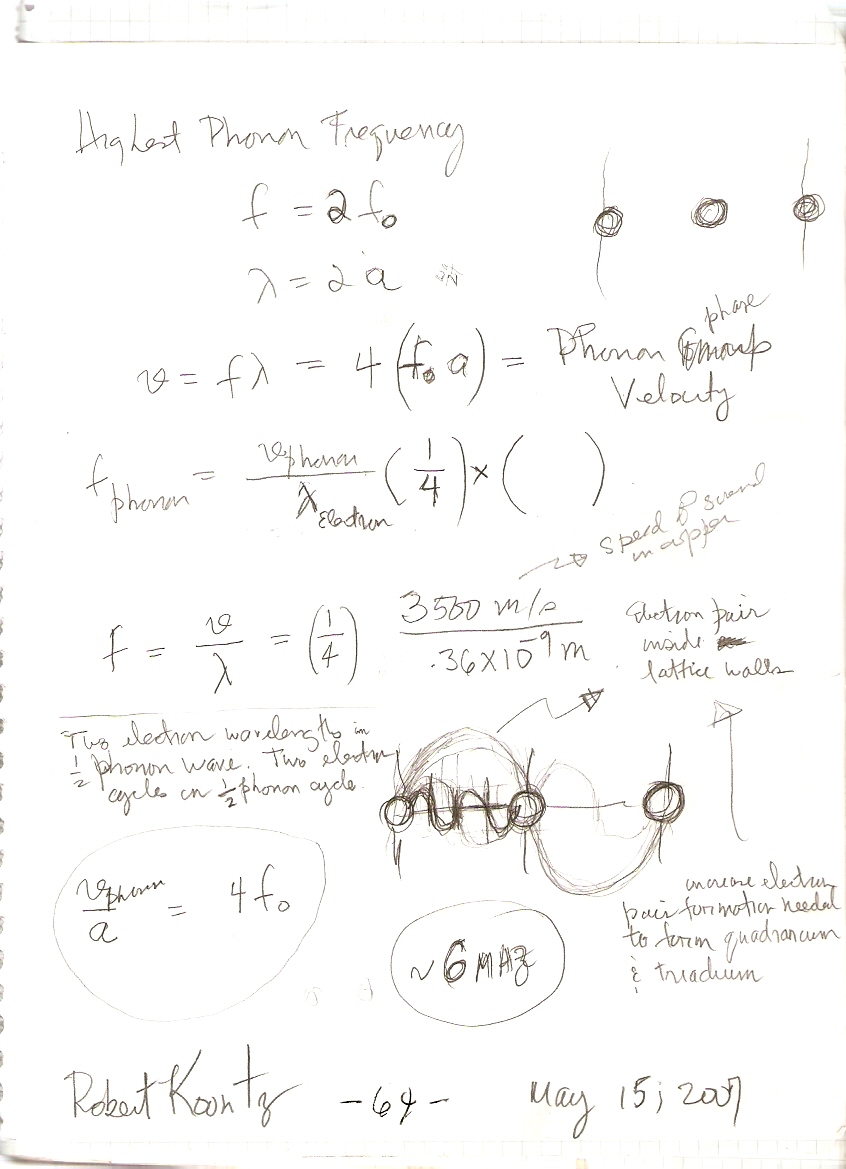 Highest Phonon Frequency
f = 2 f₀
λ = 2 a
phase
v = f λ = 4 (f₀ a) = Phonon
Velocity
f phonon = v phonon / λ Electron (1/4) × ( )
Speed of sound
in copper
f = v/λ = (1/4) 3500 m/s / .36 × 10⁻⁹ m
Electron pair
inside
lattice walls
Two electron wavelengths in
1/2 phonon wave. Two electron
cycles in 1/2 phonon cycle.
v phonon / a = 4 f₀
~ 6 MHz
increase electron
pair formation needed
to form quadranium
& triadium
Robert Koontz - 64 - May 15, 2007